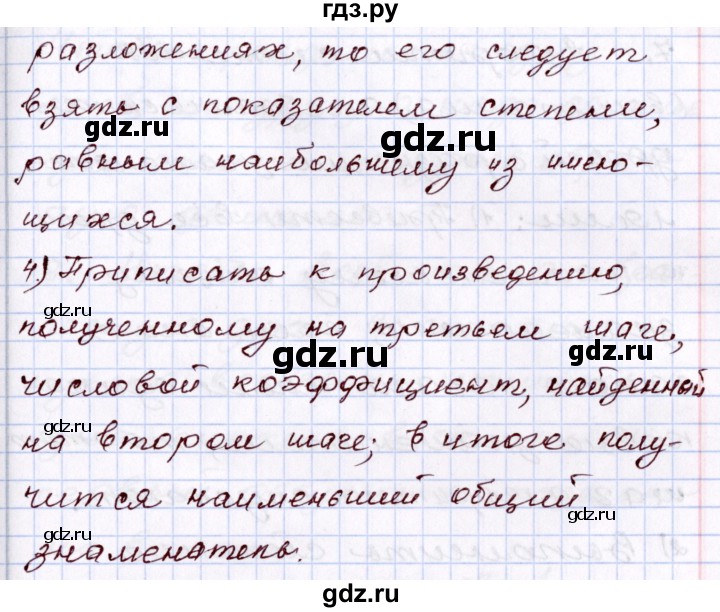 гдз.ру
разложениях, то его следует
взять с показателем степени,
gdz.ru
gdz.ru
равным наибольшему из имею-
щихся.
gdz.ru
4) Приписать к произведению,
полученному на третьем шаге,
gdz.ru
gdz.ru
gdz.ru
числовой коэффициент, найденный
на втором шаге; в итоге полу-
gdz.ru
чится наименьший общий
gdz.ru
gdz.ru
знаменатель.
gdz.ru